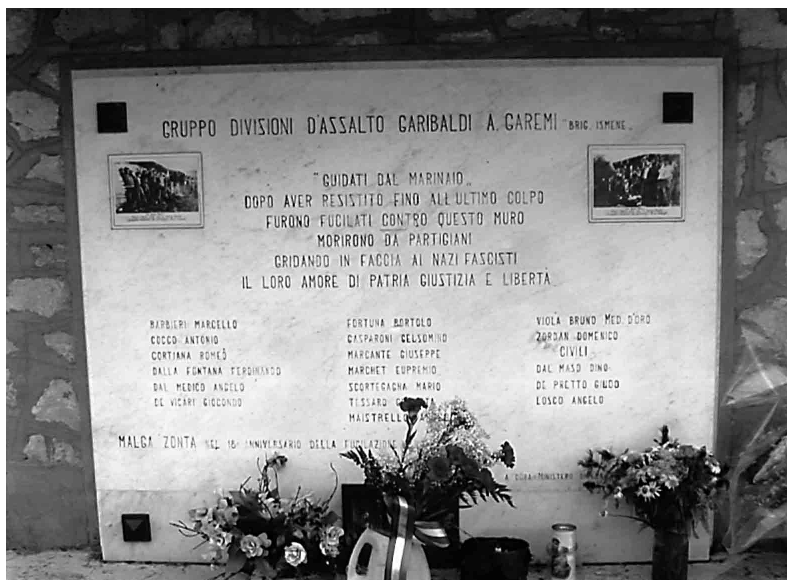 GRUPPO DIVISIONI D'ASSALTO GARIBALDI A. GAREMI "BRIG. ISMENE"
"GUIDATI DAL MARINAIO"
DOPO AVER RESISTITO FINO ALL'ULTIMO COLPO
FURONO FUCILATI CONTRO QUESTO MURO
MORIRONO DA PARTIGIANI
GRIDANDO IN FACCIA AI NAZI FASCISTI
IL LORO AMORE DI PATRIA GIUSTIZIA E LIBERTÀ
BARBIERI MARCELLO
COCCO ANTONIO
CORTIANA ROMEO
DALLA FONTANA FERDINANDO
DAL MEDICO ANGELO
DE VICARI GIOCONDO
FORTUNA BORTOLO
GASPARONI GELSOMINO
MARCANTE GIUSEPPE
MARCHET EUPREMIO
SCORTEGAGNA MARIO
TESSARO
MAISTRELLO
VIOLA BRUNO MED. D'ORO
ZORDAN DOMENICO
CIVILI
DAL MASO DINO
DE PRETTO GILDO
LOSCO ANGELO
MALGA ZONTA NEL 16° ANNIVERSARIO DELLA FUCILAZIONE
A CURA MINISTERO